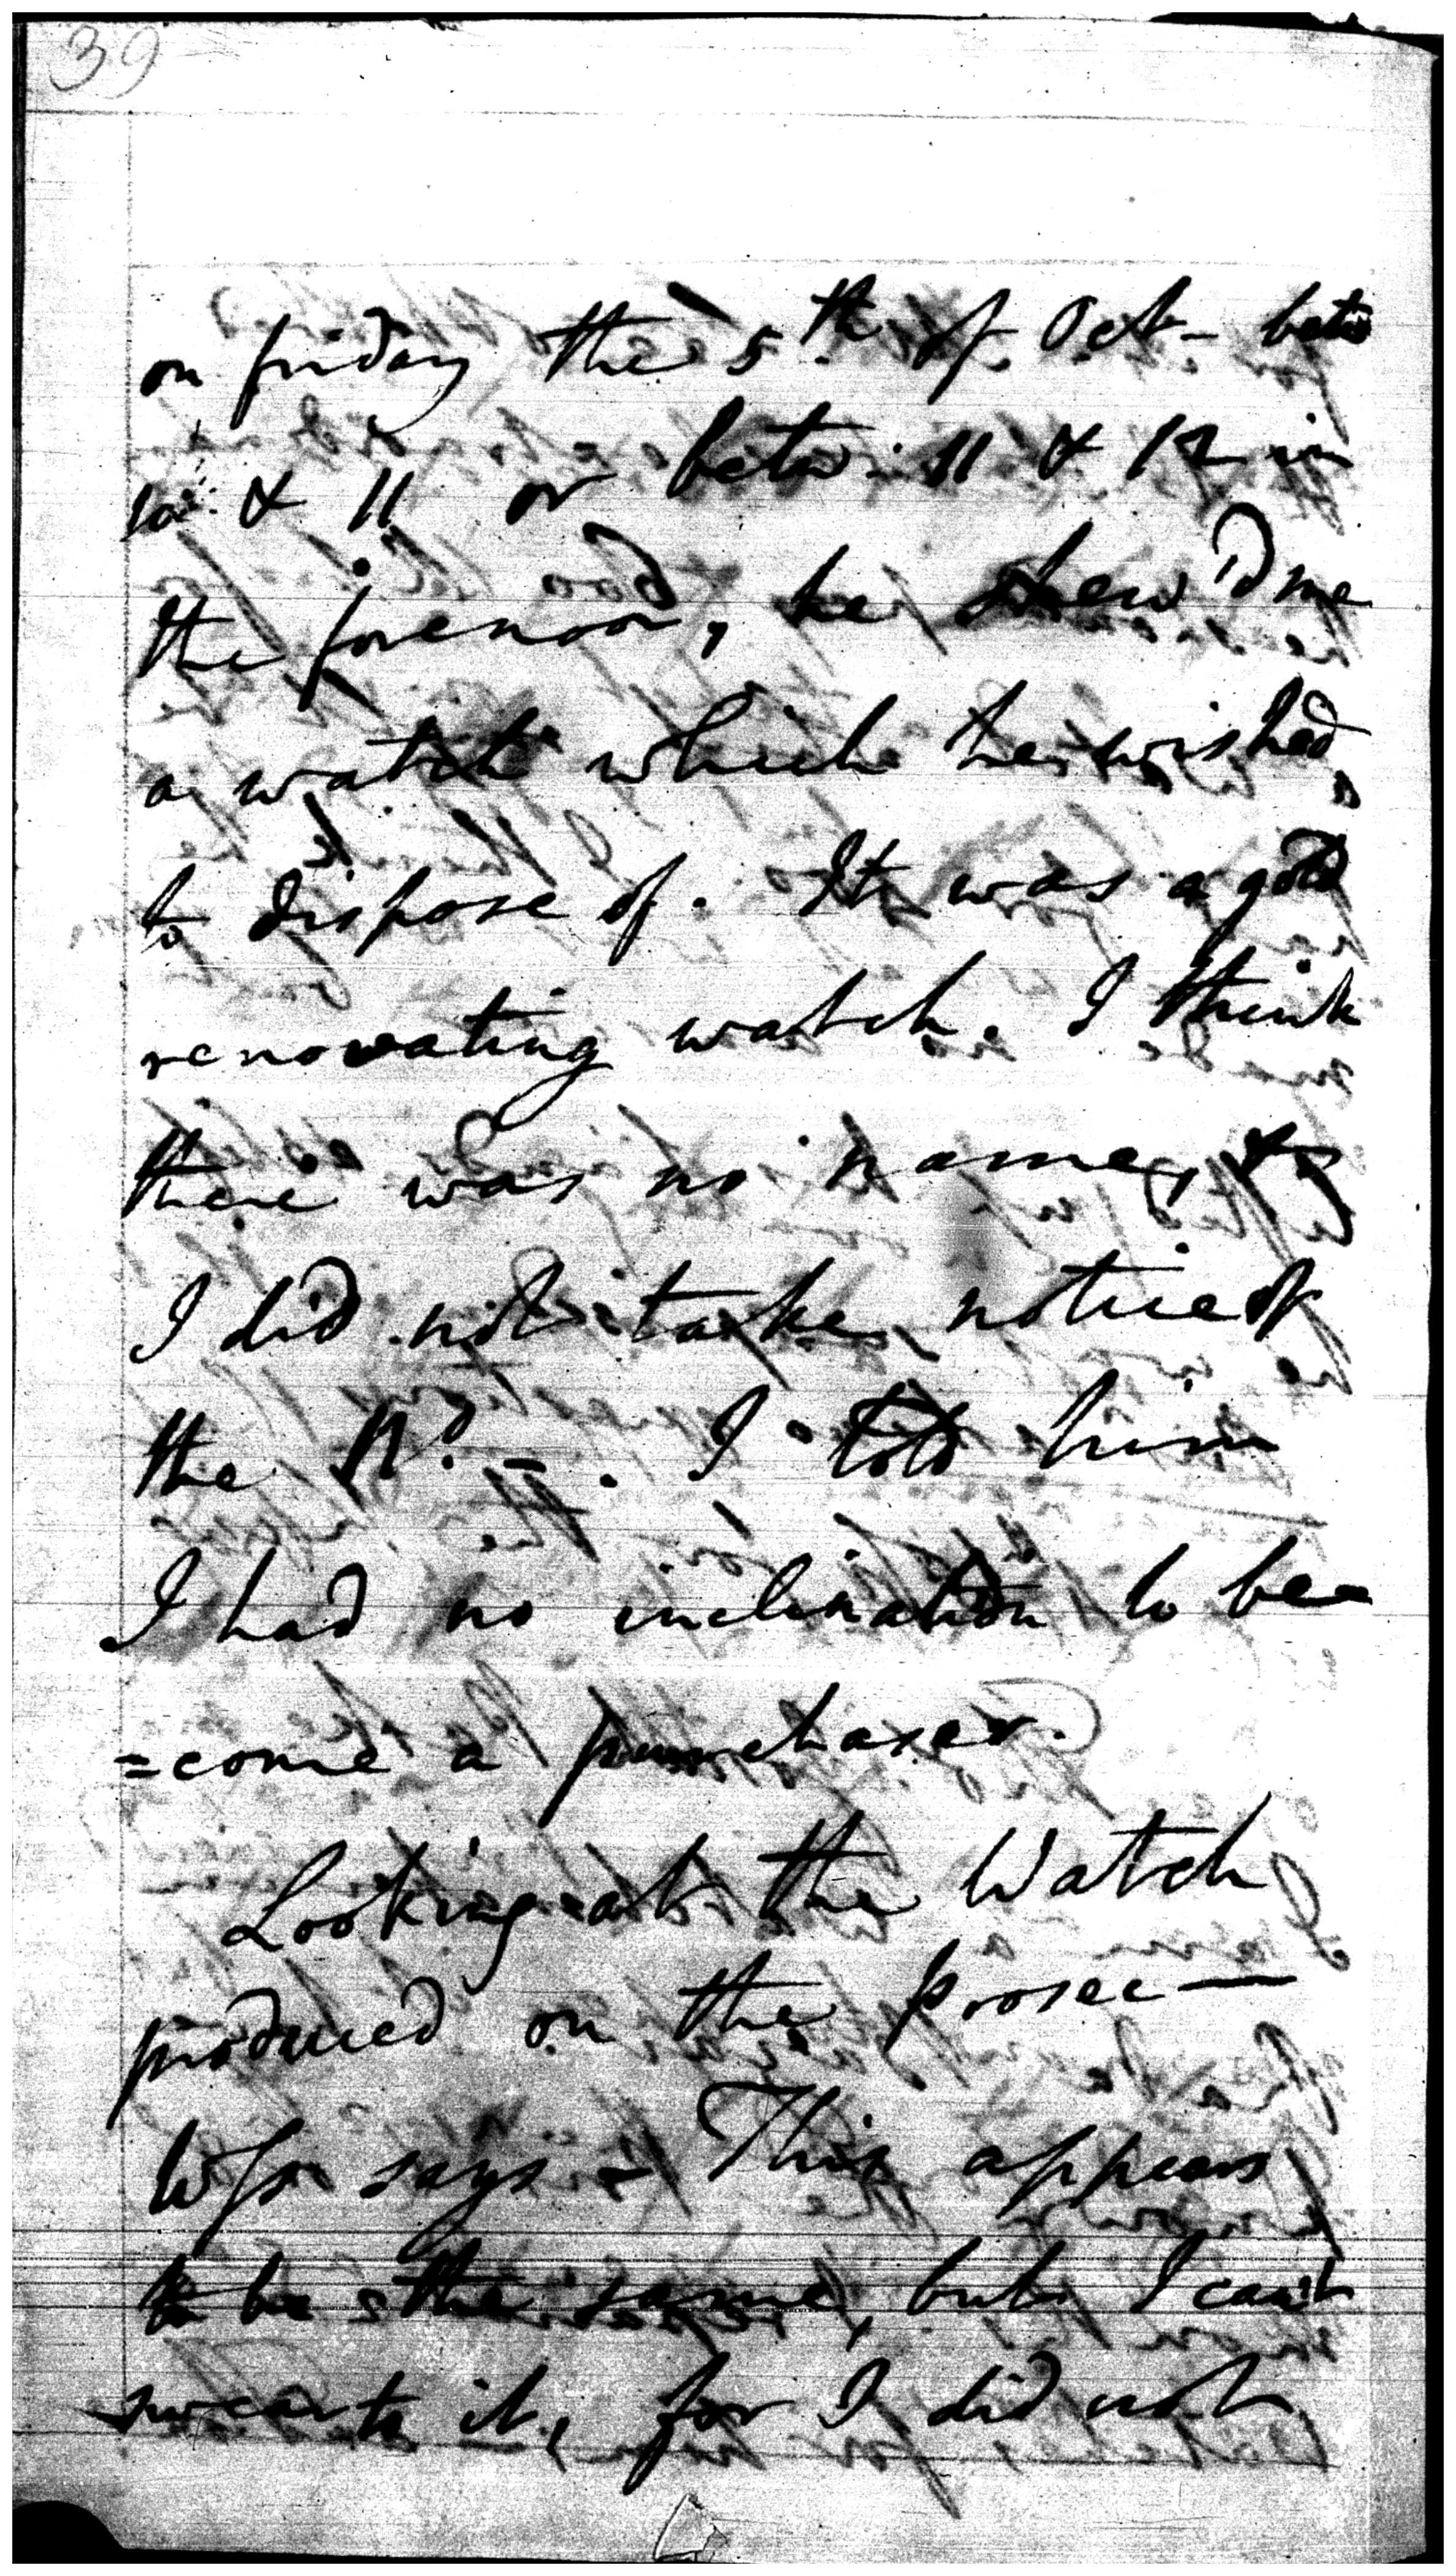 39
on friday the 5th of Oct - betw
10 & 11 or betw. 11 & 12 in
the forenoon, he shew'd me
a watch which he wished
to dispose of. It was a gold
renovating watch. I think
there was no name, &
I did not take notice of
the No. - . I told him
I had no inclination to be
=come a purchaser.
Looking at the Watch
produced on the prosec—
Wss says - This appears
to be the same, but I can't
swear to it, for I did not